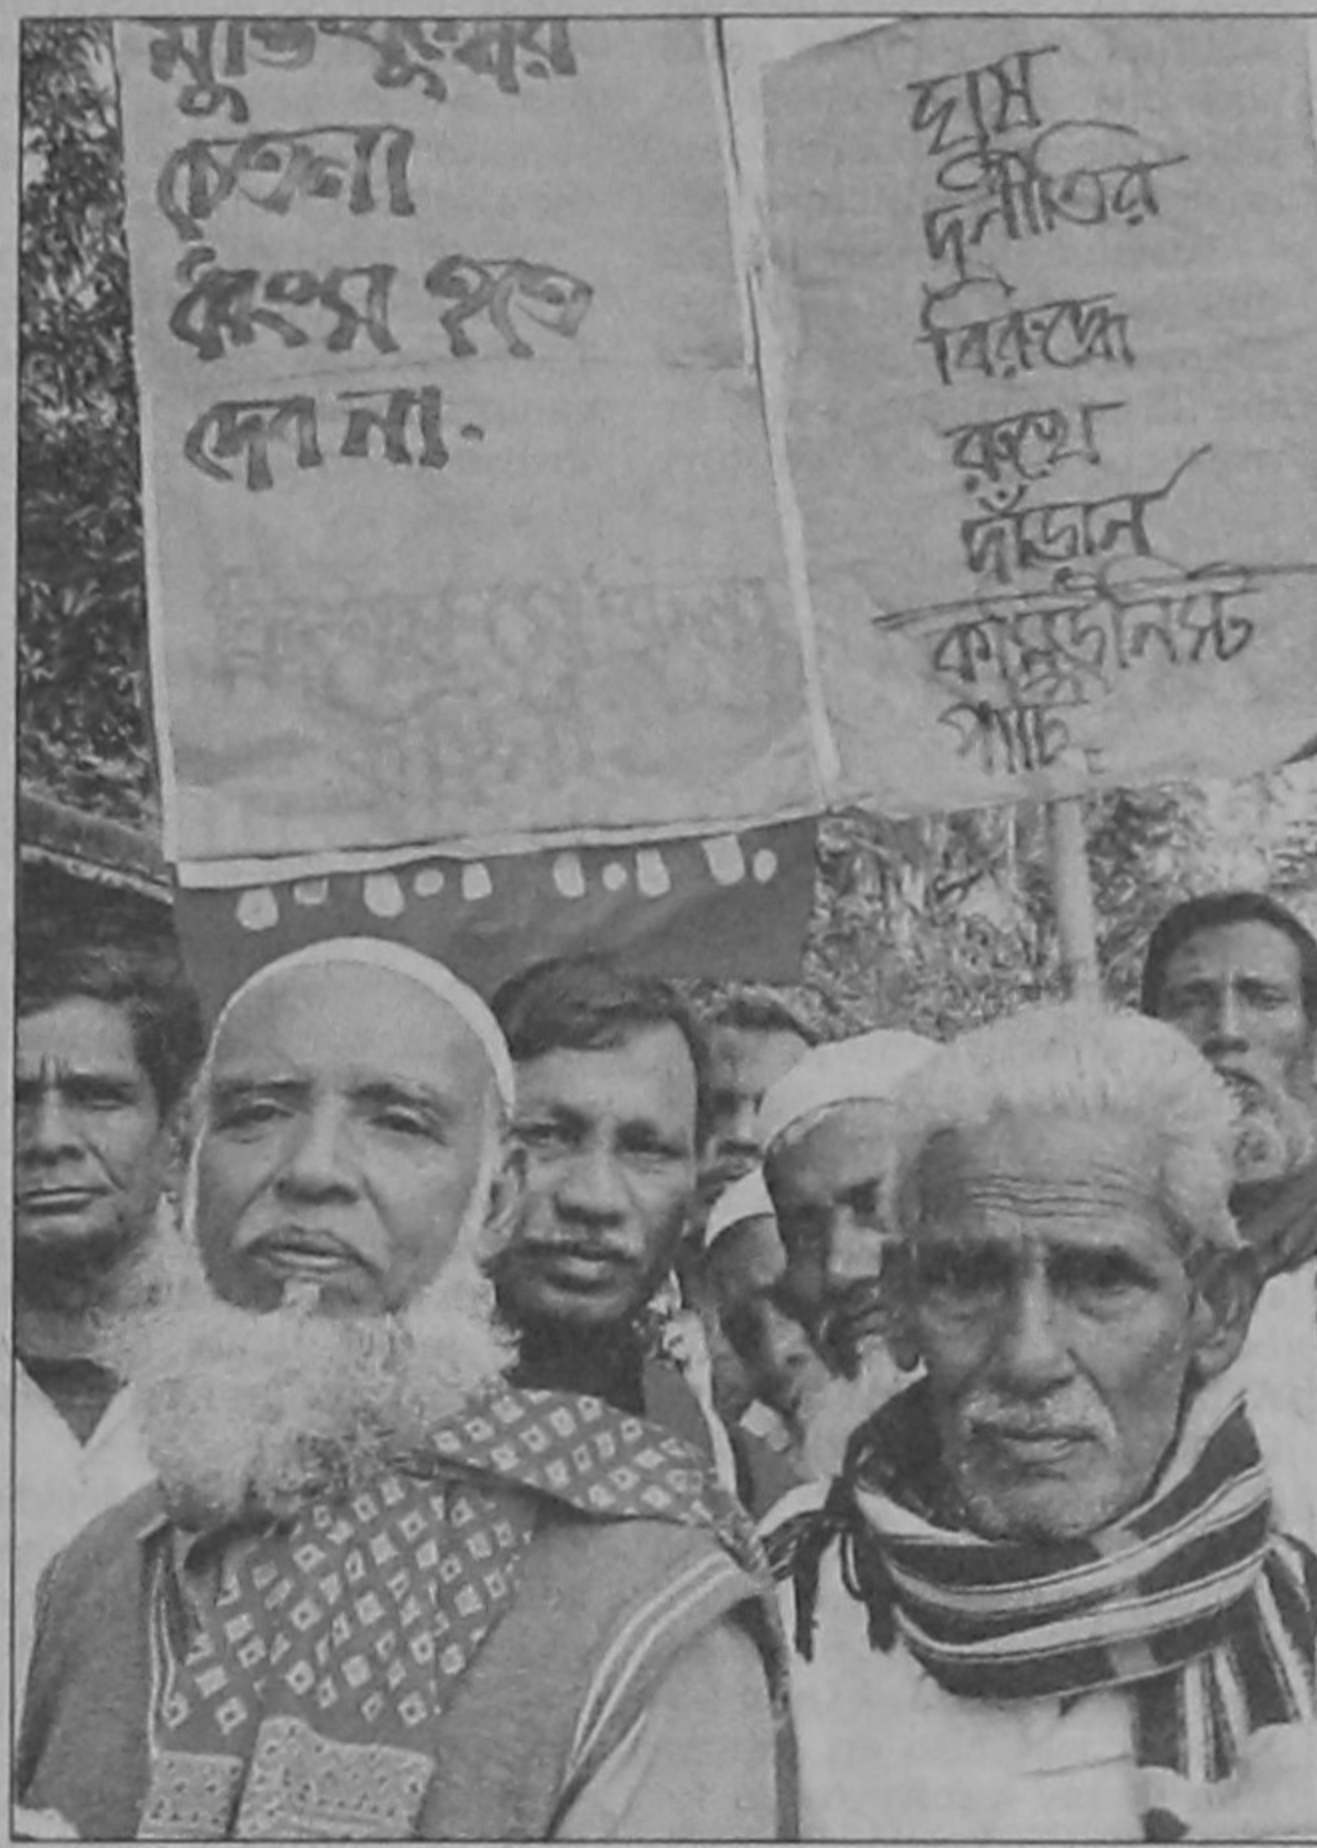 মুক্তিযুদ্ধের
চেতনা
ধ্বংস হতে
দেব না.
ঘুষ
দুর্নীতির
বিরুদ্ধে
রুখে
দাঁড়ান
কম্যুউনিস্ট
পার্টি